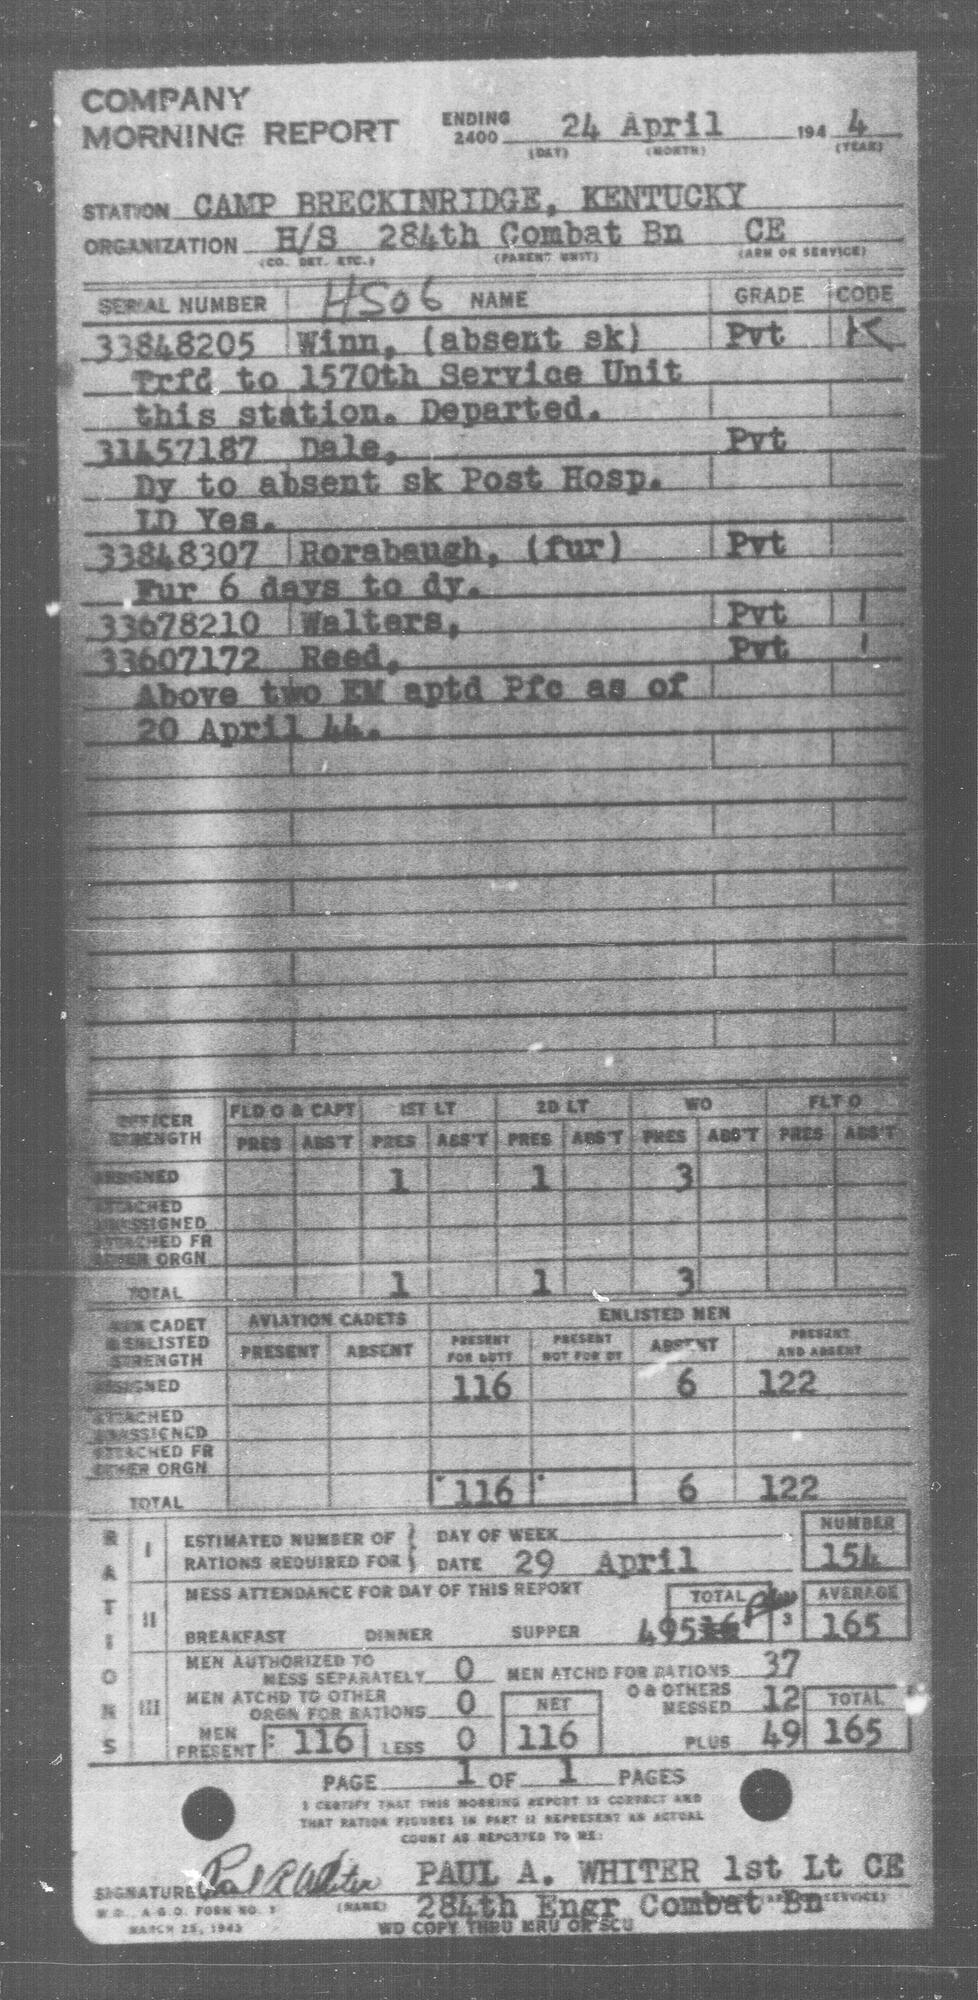 COMPANY
MORNING REPORT ENDING 2400 24 April 194 4
(DAY) (MONTH) (YEAR)
STATION CAMP BRECKINRIDGE, KENTUCKY
ORGANIZATION H/S 284th Combat Bn CE
(CO. DET. ETC.) (PARENT UNIT) (ARM OR SERVICE)
SERIAL NUMBER HS06 NAME GRADE CODE
33848205 Winn, (absent sk) Pvt K
Trfd to 1570th Service Unit
this station. Departed.
31457187 Dale, Pvt
Dy to absent sk Post Hosp.
LD Yes.
33848307 Rorabaugh, (fur) Pvt
Fur 6 days to dy.
33678210 Walters, Pvt
33607172 Reed, Pvt
Above two EM aptd Pfc as of
20 April 44.
OFFICER STRENGTH FLD O & CAPT 1ST LT 2D LT WO FLT O
PRES ABS'T PRES ABS'T PRES ABS'T PRES ABS'T PRES ABS'T
ASSIGNED 1 1 3
ATTACHED UNASSIGNED
ATTACHED FR OTHER ORGN
TOTAL 1 1 3
AVN CADET & ENLISTED STRENGTH AVIATION CADETS ENLISTED MEN
PRESENT ABSENT PRESENT FOR DUTY PRESENT NOT FOR DY ABSENT PRESENT AND ABSENT
ASSIGNED 116 6 122
ATTACHED UNASSIGNED
ATTACHED FR OTHER ORGN
TOTAL 116 6 122
RATIONS
I ESTIMATED NUMBER OF RATIONS REQUIRED FOR DAY OF WEEK NUMBER
DATE 29 April 154
II MESS ATTENDANCE FOR DAY OF THIS REPORT TOTAL AVERAGE
BREAKFAST DINNER SUPPER 495 3 165
III MEN AUTHORIZED TO MESS SEPARATELY 0 MEN ATCHD FOR RATIONS 37
MEN ATCHD TO OTHER ORGN FOR RATIONS 0 NET O & OTHERS MESSED 12 TOTAL
MEN PRESENT 116 LESS 0 116 PLUS 49 165
PAGE 1 OF 1 PAGES
I CERTIFY THAT THIS MORNING REPORT IS CORRECT AND
THAT RATION FIGURES IN PART II REPRESENT AN ACTUAL
COUNT AS REPORTED TO ME:
SIGNATURE Paul A Whiter PAUL A. WHITER 1st Lt CE
W.D., A.G.O. FORM NO. 1 (NAME) 284th Engr Combat Bn
MARCH 25, 1943 WD COPY THRU MRU OR SCU